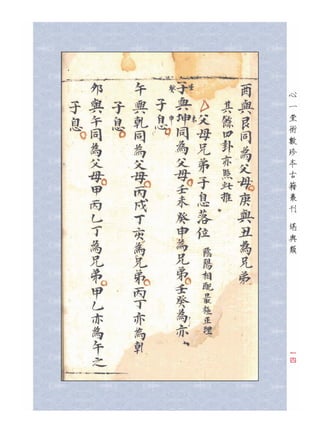 酉與艮同為父母庚與丑為兄弟
其餘四卦亦照此推
△父母兄弟子息落位 陰陽相配最極正理
子與坤同為父母壬未癸申為兄弟壬癸為亦
子息
午與乾同為父母丙戌丁亥為兄弟丙丁亦為乾
子息
邜與午同為父母甲丙乙丁為兄弟甲乙亦為午之
子息
心一堂術數珍本古籍叢刊 堪輿類
一四